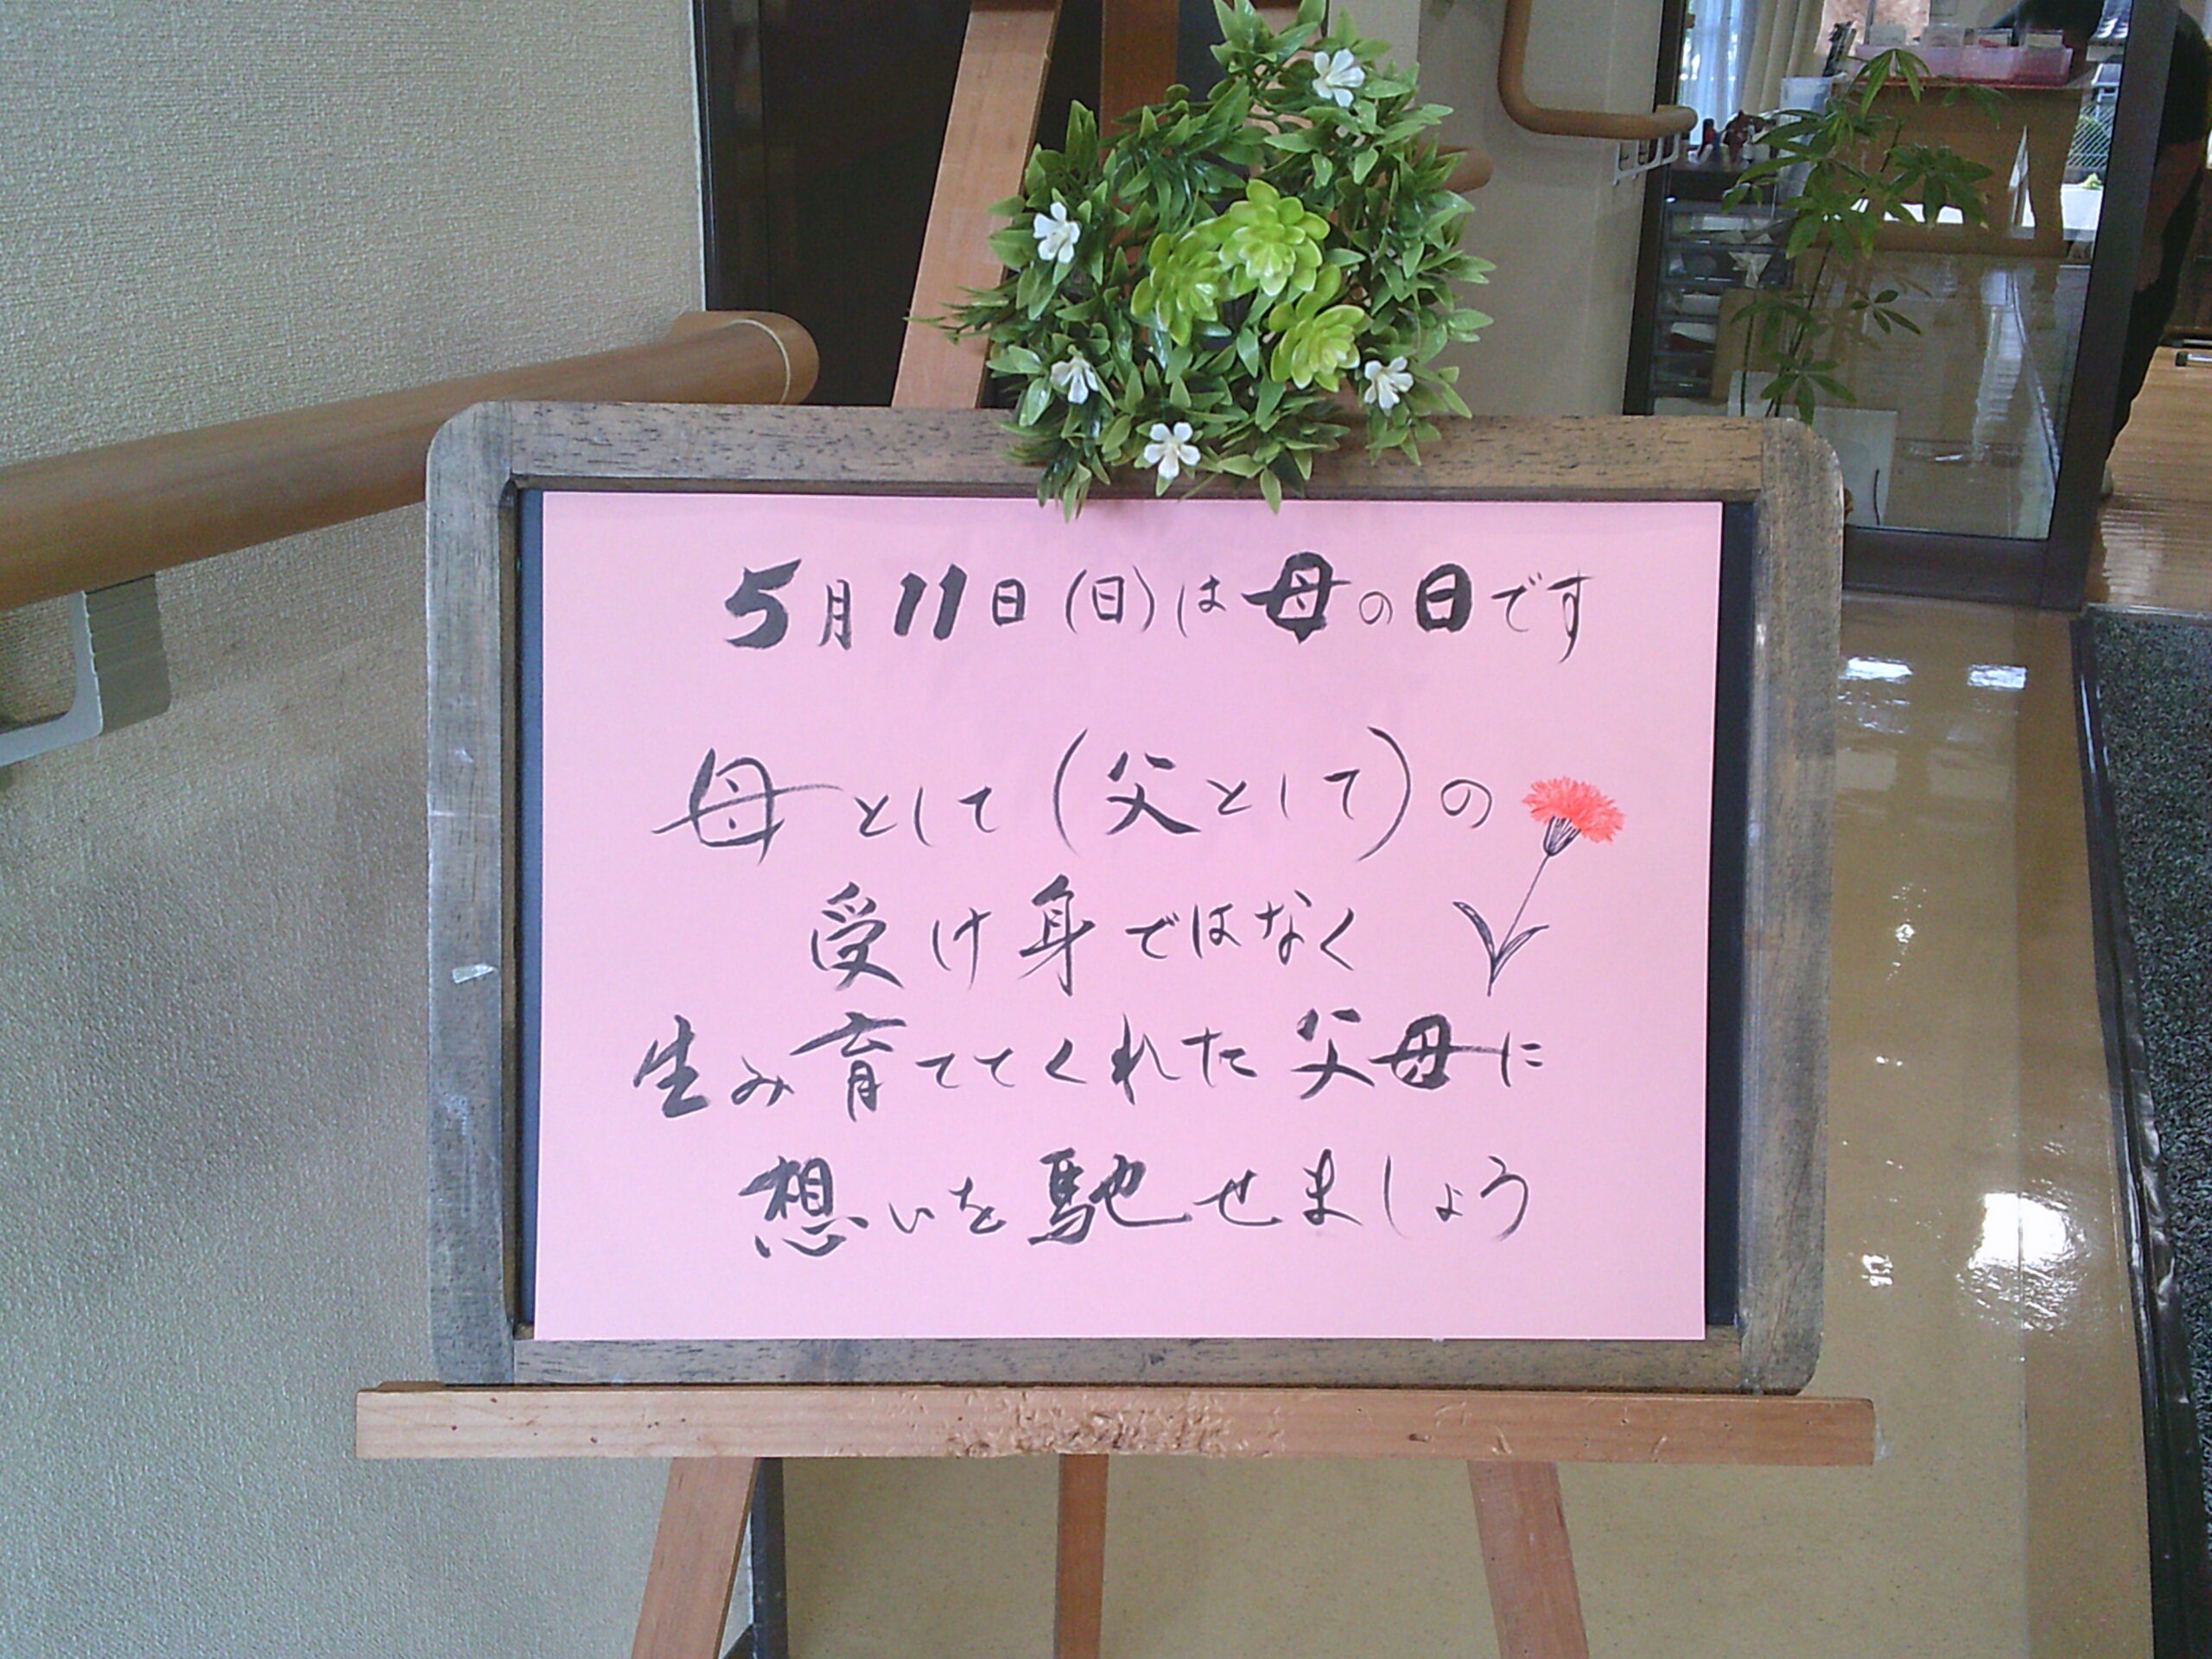 5月11日(日)は母の日です
母として(父として)の
受け身ではなく
生み育ててくれた父母に
想いを馳せましょう